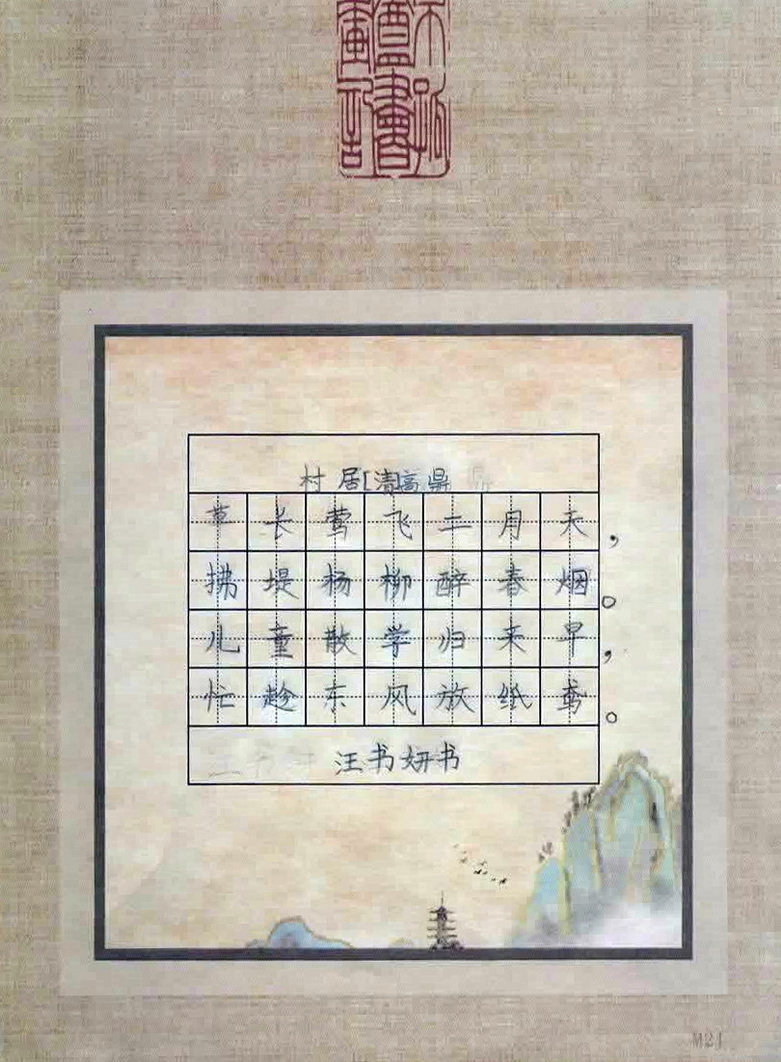 村居[清]高鼎
草长莺飞二月天，
拂堤杨柳醉春烟。
儿童散学归来早，
忙趁东风放纸鸢。
汪书妍书
M21